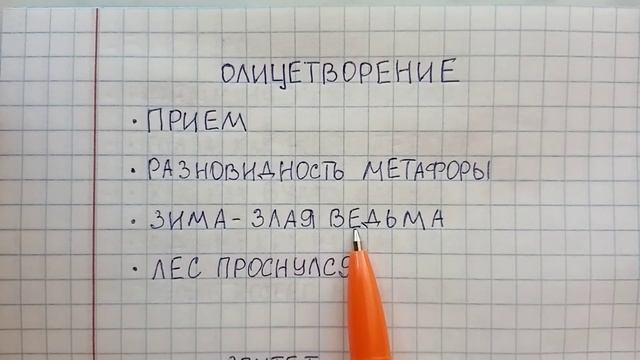 ОЛИЦЕТВОРЕНИЕ
· ПРИЕМ
· РАЗНОВИДНОСТЬ МЕТАФОРЫ
· ЗИМА - ЗЛАЯ ВЕДЬМА
· ЛЕС ПРОСНУЛСЯ